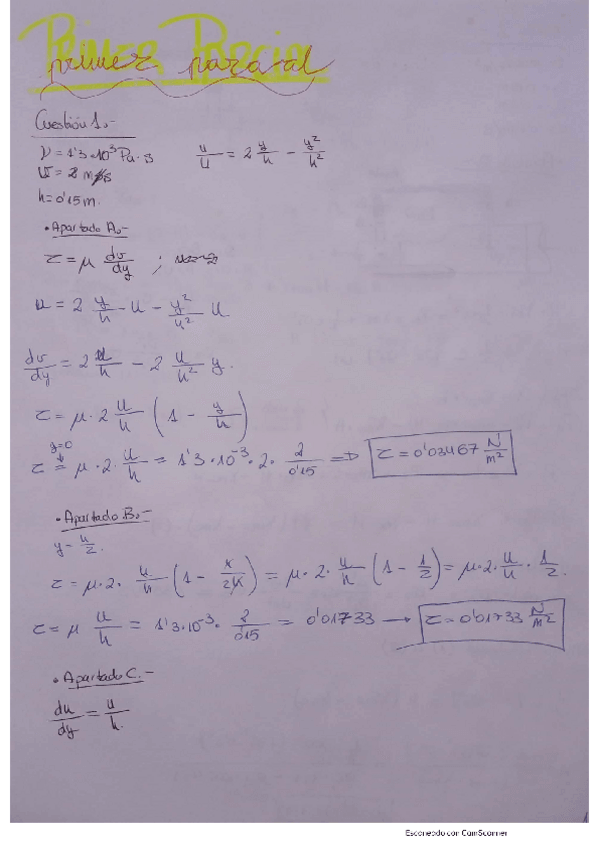 Primer Parcial
primer parcial
Cuestión 1.-
ν = 1'3·10³ Pa·s    u/U = 2 y/h - y²/h²
U = 2 m/s
h = 0'15 m.
• Apartado A.-
τ = μ dv/dy ;
u = 2 y/h · u - y²/h² u
dv/dy = 2 u/h - 2 u/h² y.
τ = μ·2 u/h (1 - y/h)
y=0
τ = μ·2·u/h = 1'3·10⁻³·2· 2/0'15 => τ = 0'03467 N/m²
• Apartado B.-
y = h/2.
τ = μ·2· u/h (1 - h/2h) = μ·2·u/h (1 - 1/2) = μ·2·u/h · 1/2.
τ = μ u/h = 1'3·10⁻³· 2/0'15 = 0'01733 → τ = 0'01733 N/m²
• Apartado C.-
du/dy = u/h.
1
Escaneado con CamScanner